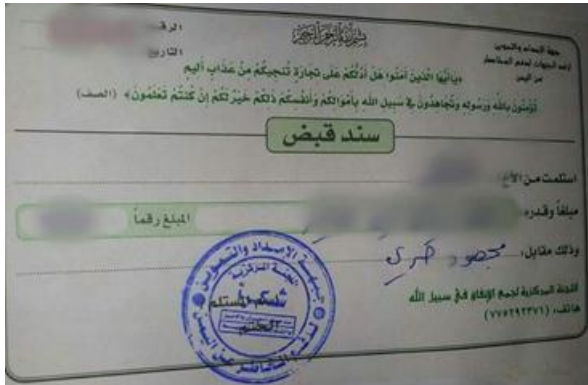 بسم الله الرحمن الرحيم
الرقم
التاريخ
جبهة الإمداد والتموين
لدعم
عن اليمن
﴿يَاأَيُّهَا الَّذِينَ آمَنُوا هَلْ أَدُلُّكُمْ عَلَى تِجَارَةٍ تُنجِيكُم مِّنْ عَذَابٍ أَلِيمٍ
تُؤْمِنُونَ بِاللَّهِ وَرَسُولِهِ وَتُجَاهِدُونَ فِي سَبِيلِ اللَّهِ بِأَمْوَالِكُمْ وَأَنفُسِكُمْ ذَلِكُمْ خَيْرٌ لَّكُمْ إِن كُنتُمْ تَعْلَمُونَ﴾ (الصف)
سند قبض
استلمت من الأخ/
مبلغاً وقدره
المبلغ رقماً
وذلك مقابل: مجهود حربي
اللجنة المركزية لجمع الإنفاق في سبيل الله
هاتف: (٧٧٥٢٩٢٣٧١)
جبهة الإمداد والتموين
اللجنة المركزية
المستلم
الختم
عن اليمن